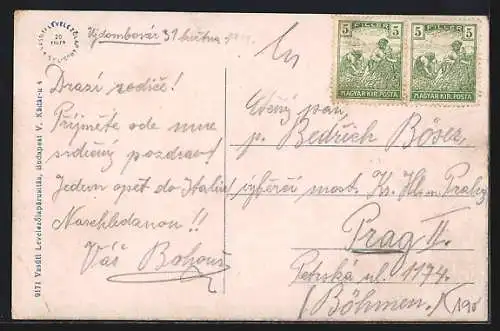 LEVELEZŐLAP
20
Ujdombovár 31 května
Drazí rodiče!
Přijměte ode mne
srdečný pozdrav!
Jedem opět do Italie
Naschledanou!!
Váš Bohouš
9171 Vasúti Levelezőlapárusítás, Budapest V. Káldár-u
5 FILLÉR 5
MAGYAR KIR. POSTA
5 FILLÉR 5
MAGYAR KIR. POSTA
Ctěný pan
p. Bedřich Böser
výběrčí most. Kr. Hl. m Prahy
Prag II.
Petrská ul. 1174.
(Böhmen.)